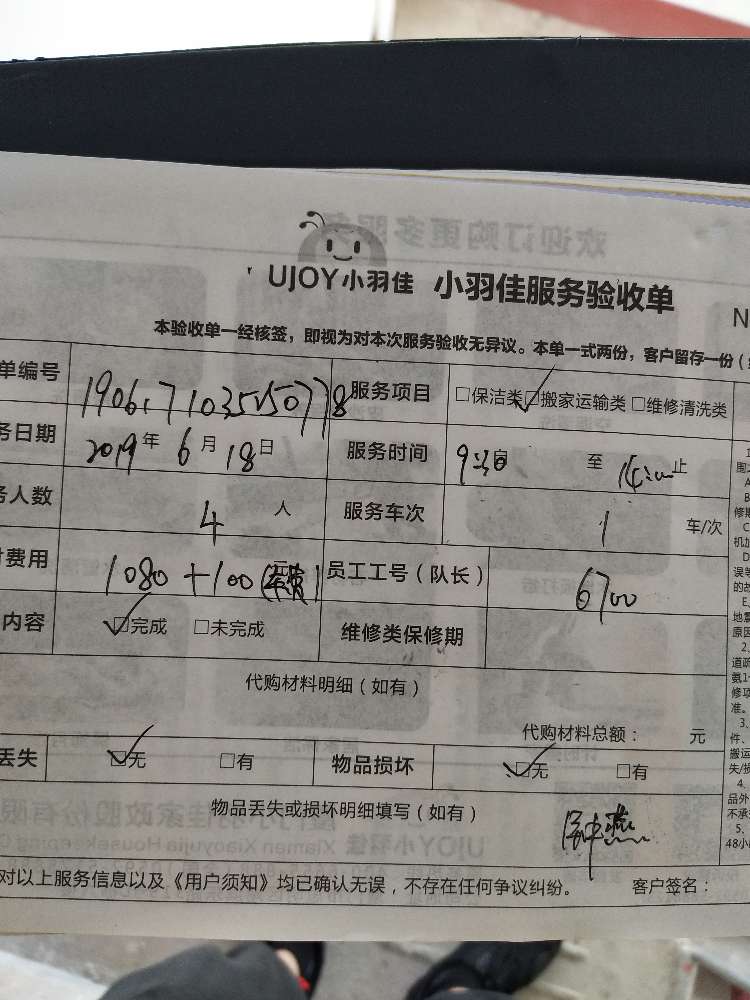 欢迎订购更多服务
UJOY小羽佳 小羽佳服务验收单
N
本验收单一经核签，即视为对本次服务验收无异议。本单一式两份，客户留存一份（
单编号 服务项目 □保洁类 ☑搬家运输类 □维修清洗类
务日期 2019年6月18日 服务时间 9:30 至 14:00 止
务人数 4人 服务车次 1 车/次
费用 1080+100 员工工号（队长） 6700
内容 ☑完成 □未完成 维修类保修期
代购材料明细（如有）
代购材料总额： 元
丢失 ☑无 □有 物品损坏 ☑无 □有
物品丢失或损坏明细填写（如有）
对以上服务信息以及《用户须知》均已确认无误，不存在任何争议纠纷。 客户签名：